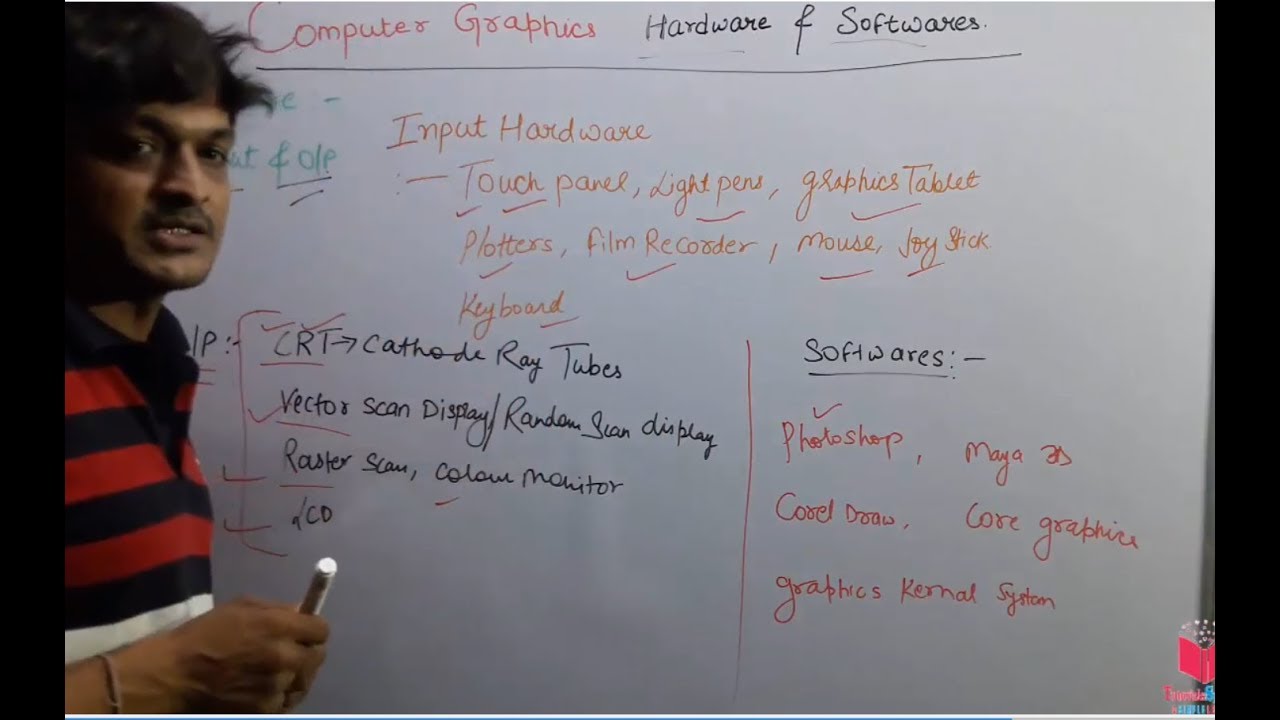 Computer Graphics Hardware & Softwares.
& O/P
Input Hardware
:- Touch panel, Light pens, graphics Tablet
Plotters, Film Recorder, mouse, Joy stick
Keyboard
/P:- CRT→ Cathode Ray Tubes
Vector Scan Display/Random Scan display
Raster Scan, Colour Monitor
LCD
Softwares:-
Photoshop, Maya 3D
Corel Draw, Core graphics
graphics Kernal System